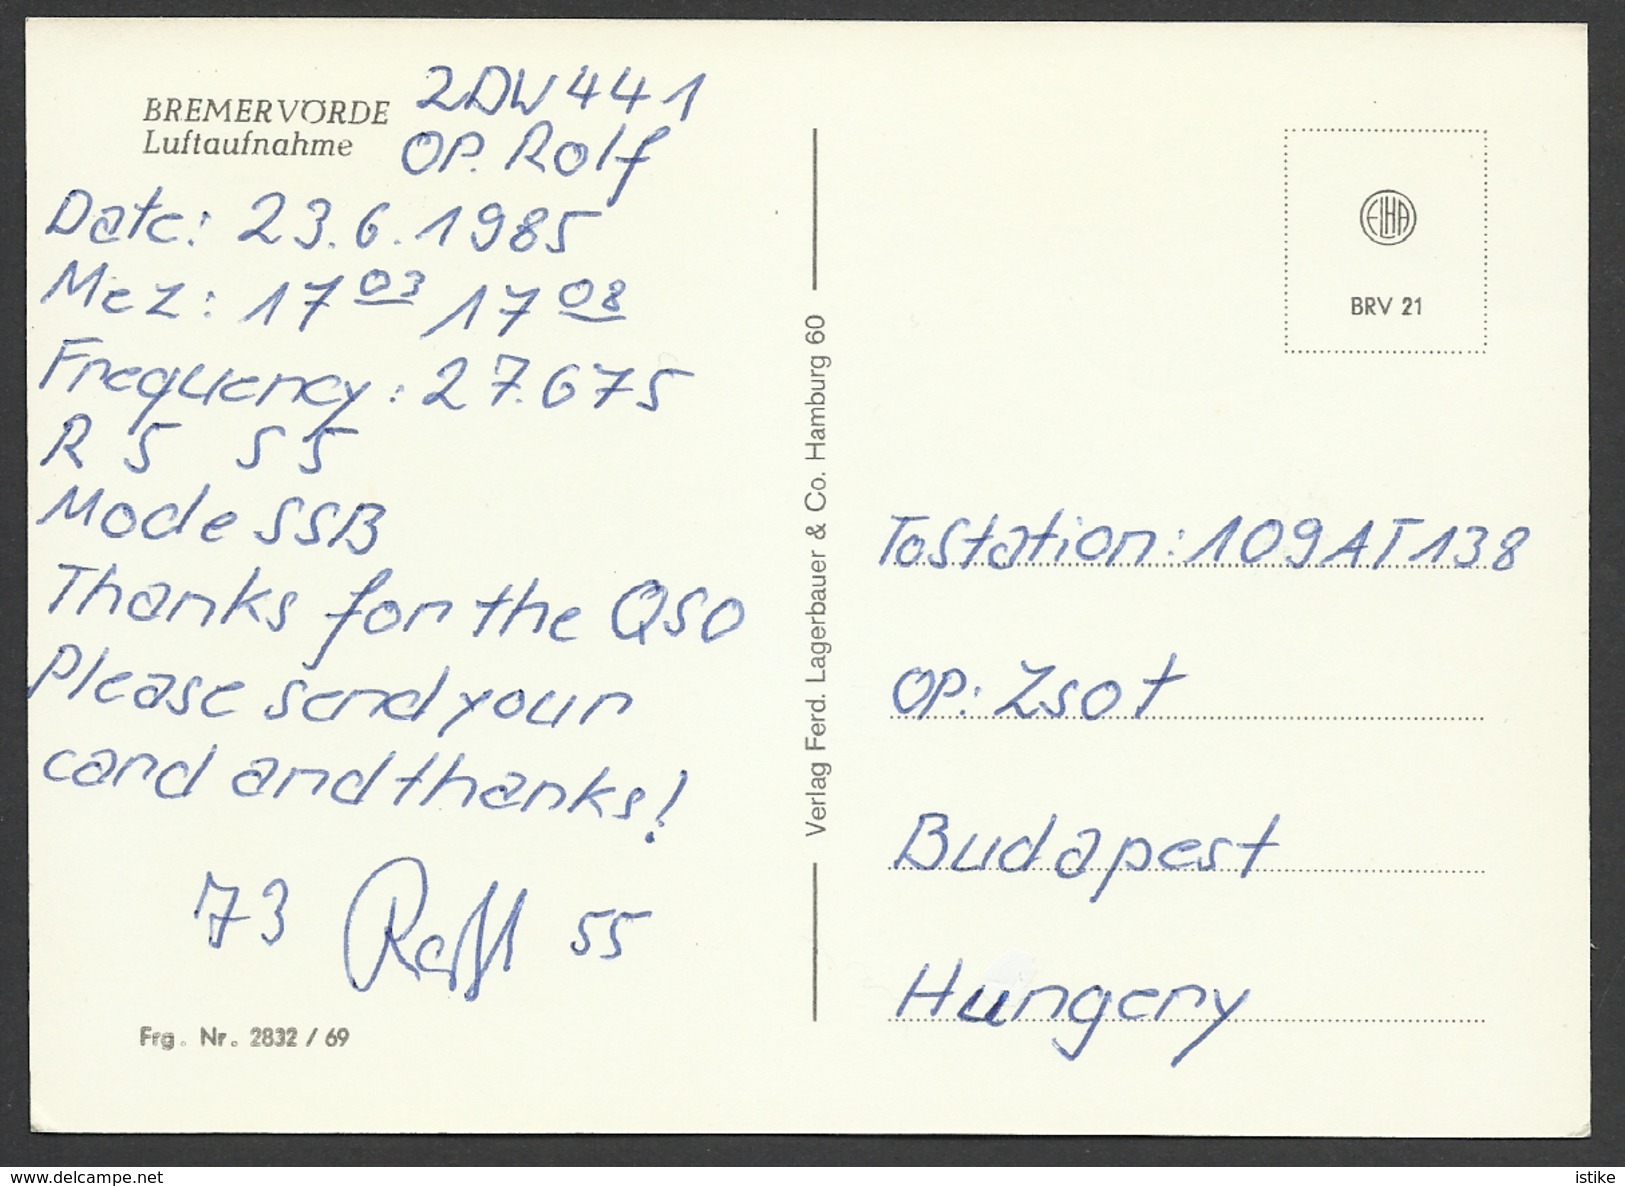 BREMERVÖRDE
Luftaufnahme
2DW441
OP. Rolf
Date: 23.6.1985
Mez: 17 03 17 08
Frequency: 27.675
R 5 S 5
Mode SSB
Thanks for the QSO
Please send your
card and thanks!
73 Rolf 55
Frg. Nr. 2832 / 69
Verlag Ferd. Lagerbauer & Co. Hamburg 60
ELHA
BRV 21
To Station: 109AT138
OP: Zsot
Budapest
Hungery
delcampe.net
istike